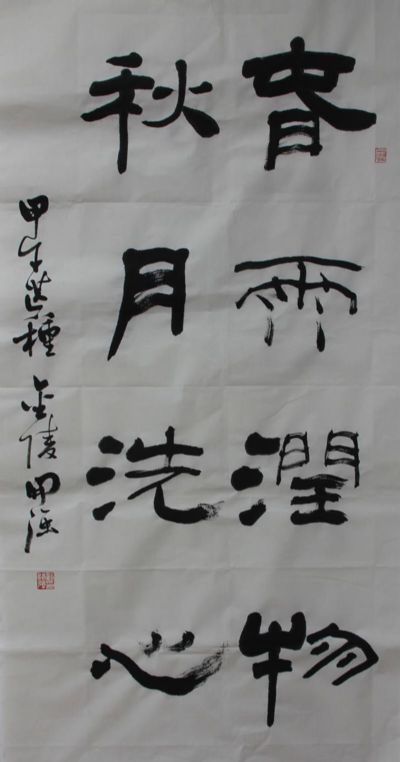 春雨潤物
秋月洗心
甲午芒種 金陵甲源